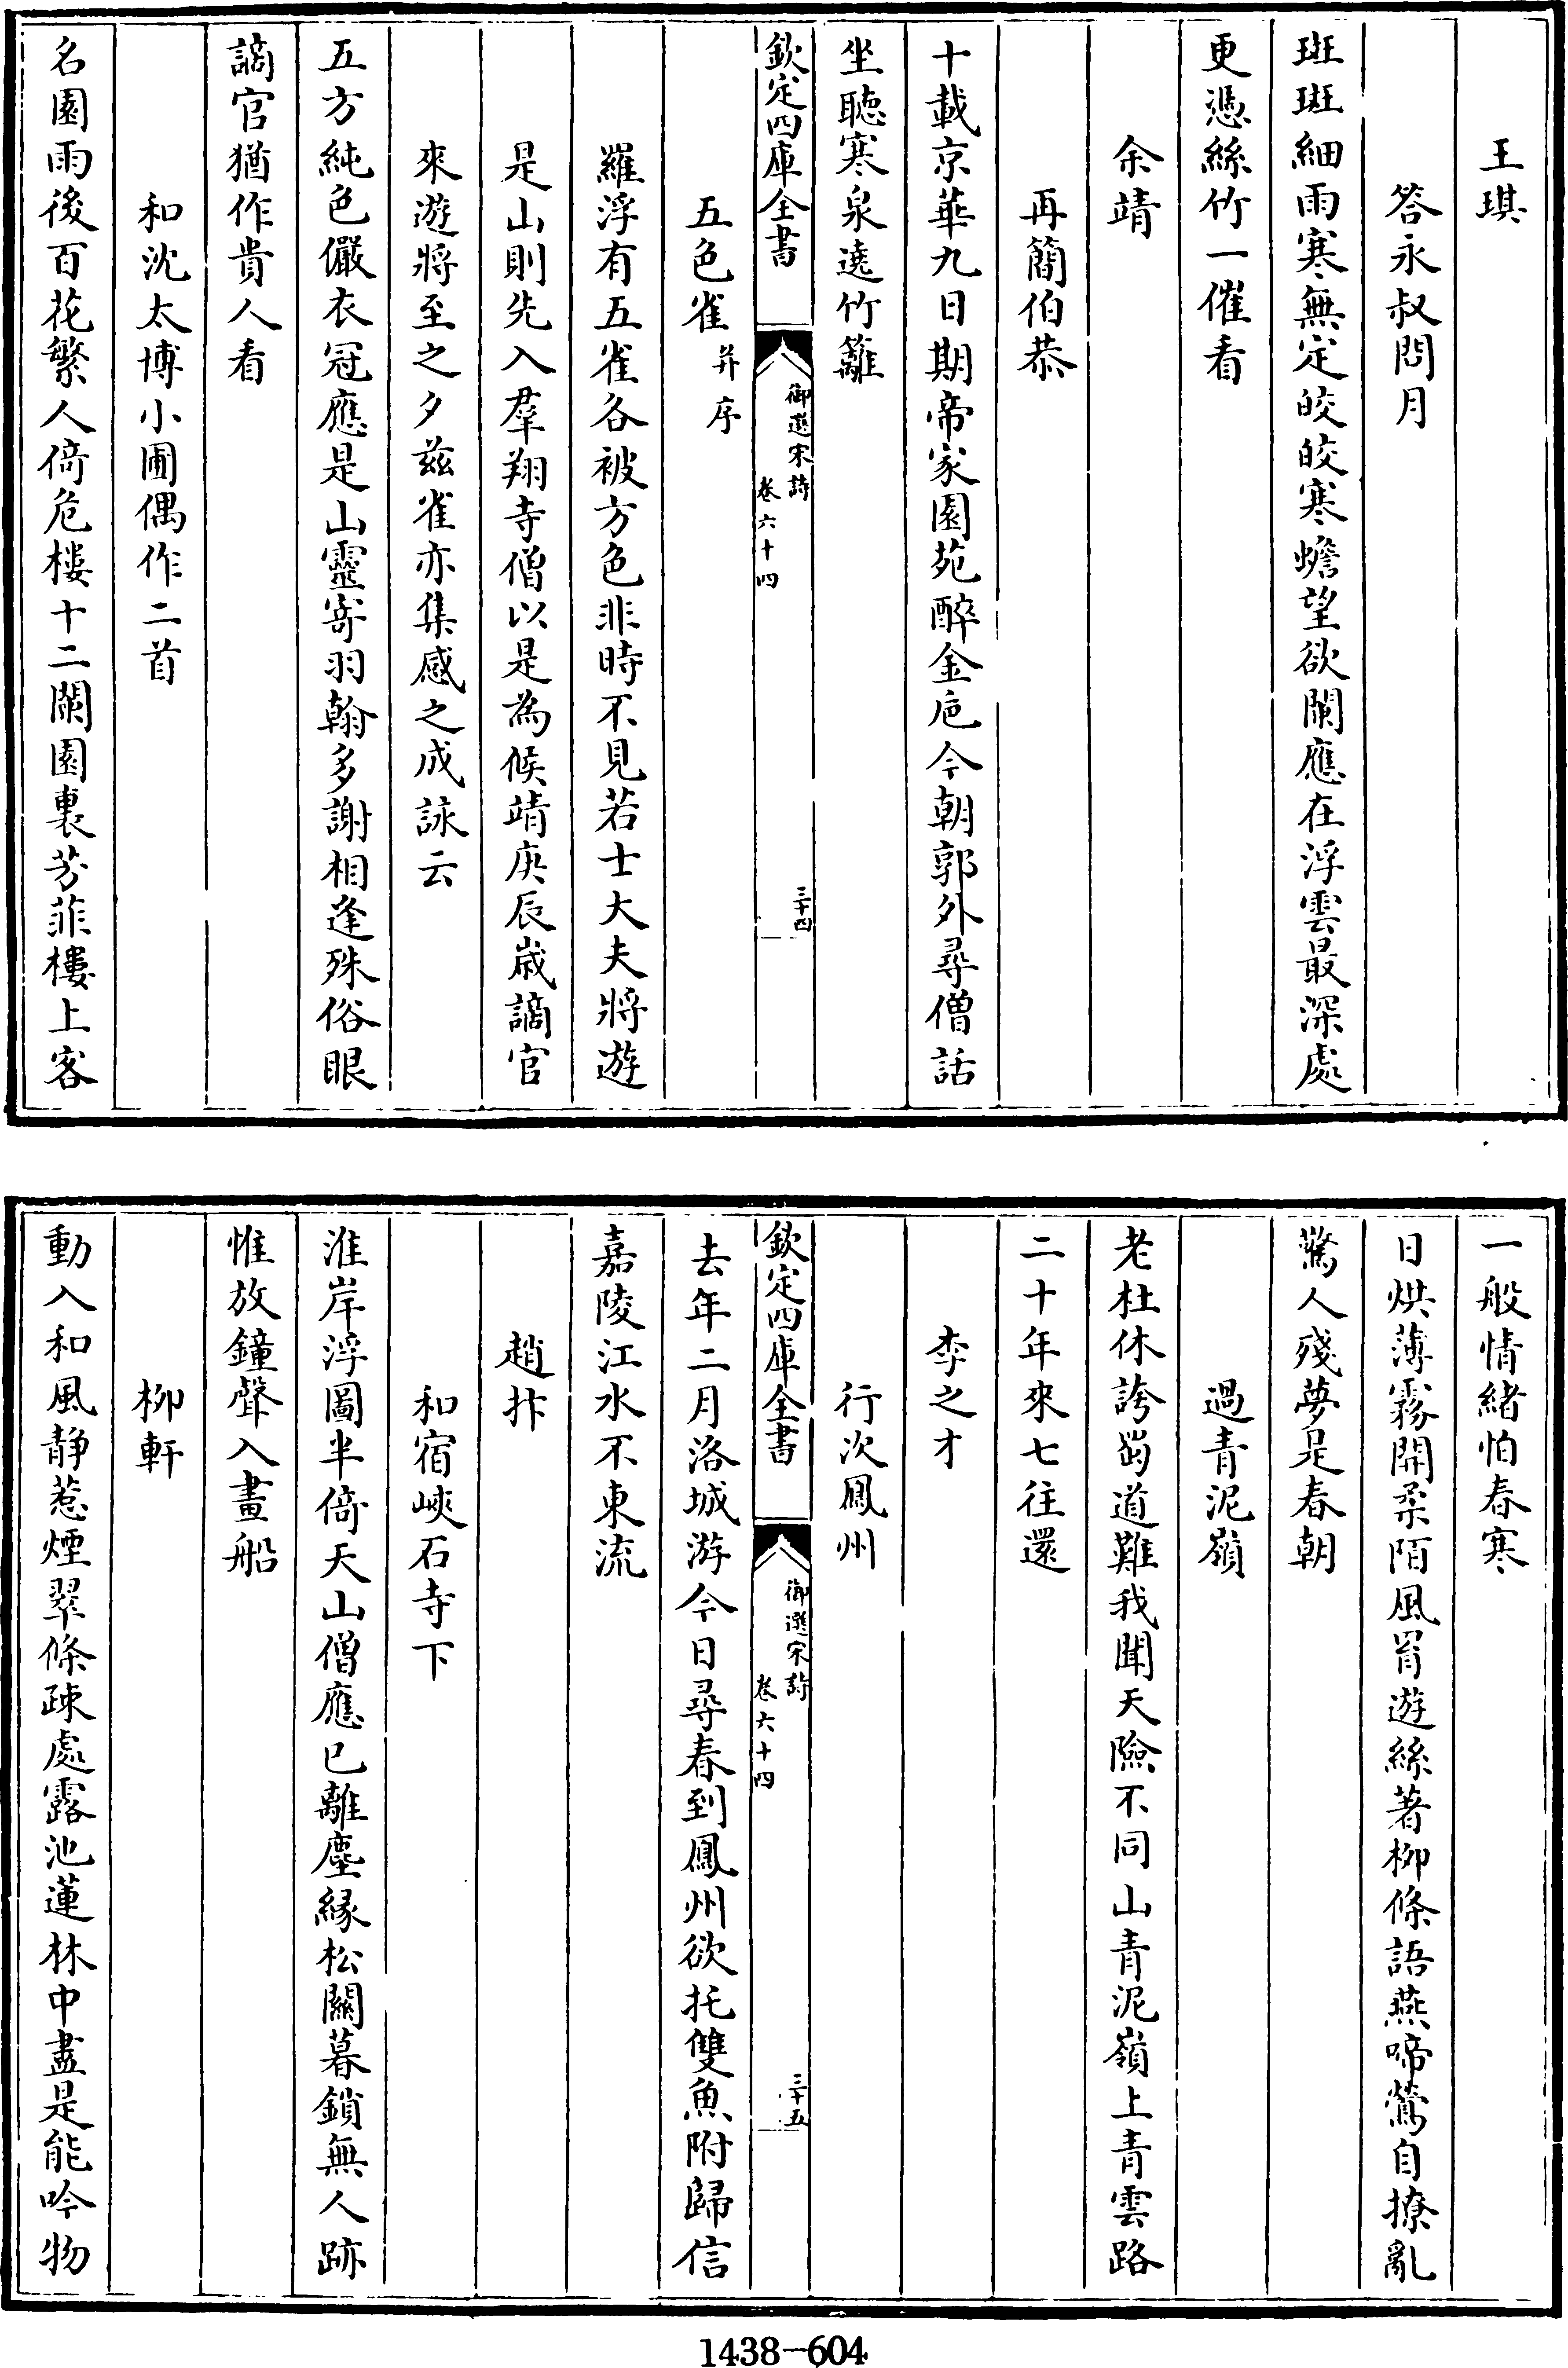 王琪
答永叔問月
斑斑細雨寒無定皎皎寒蟾望欲闌應在浮雲最深處
更憑絲竹一催看
余靖
再簡伯恭
十載京華九日期帝家園苑醉金巵今朝郭外尋僧話
坐聴寒泉遶竹籬
欽定四庫全書
御選宋詩
卷六十四
三十四
五色雀并序
羅浮有五雀各被方色非時不見若士大夫將遊
是山則先入羣翔寺僧以是為候靖庚辰嵗謫官
來遊將至之夕兹雀亦集感之成詠云
五方純色儼衣冠應是山靈寄羽翰多謝相逢殊俗眼
謫官猶作貴人看
和沈太博小圃偶作二首
名園雨後百花繁人倚危樓十二闌園裏芳菲樓上客
一般情緒怕春寒
日烘薄霧開柔陌風罥遊絲著栁條語燕啼鶯自撩亂
驚人殘夢是春朝
過青泥嶺
老杜休誇蜀道難我聞天險不同山青泥嶺上青雲路
二十年來七往還
李之才
行次鳳州
欽定四庫全書
御選宋詩
卷六十四
三十五
去年二月洛城游今日尋春到鳳州欲托雙魚附歸信
嘉陵江水不東流
趙抃
和宿峽石寺下
淮岸浮圖半倚天山僧應已離塵緣松關暮鎖無人跡
惟放鐘聲入畫船
栁軒
動入和風静惹煙翠條疎處露池蓮林中盡是能吟物
1438-604